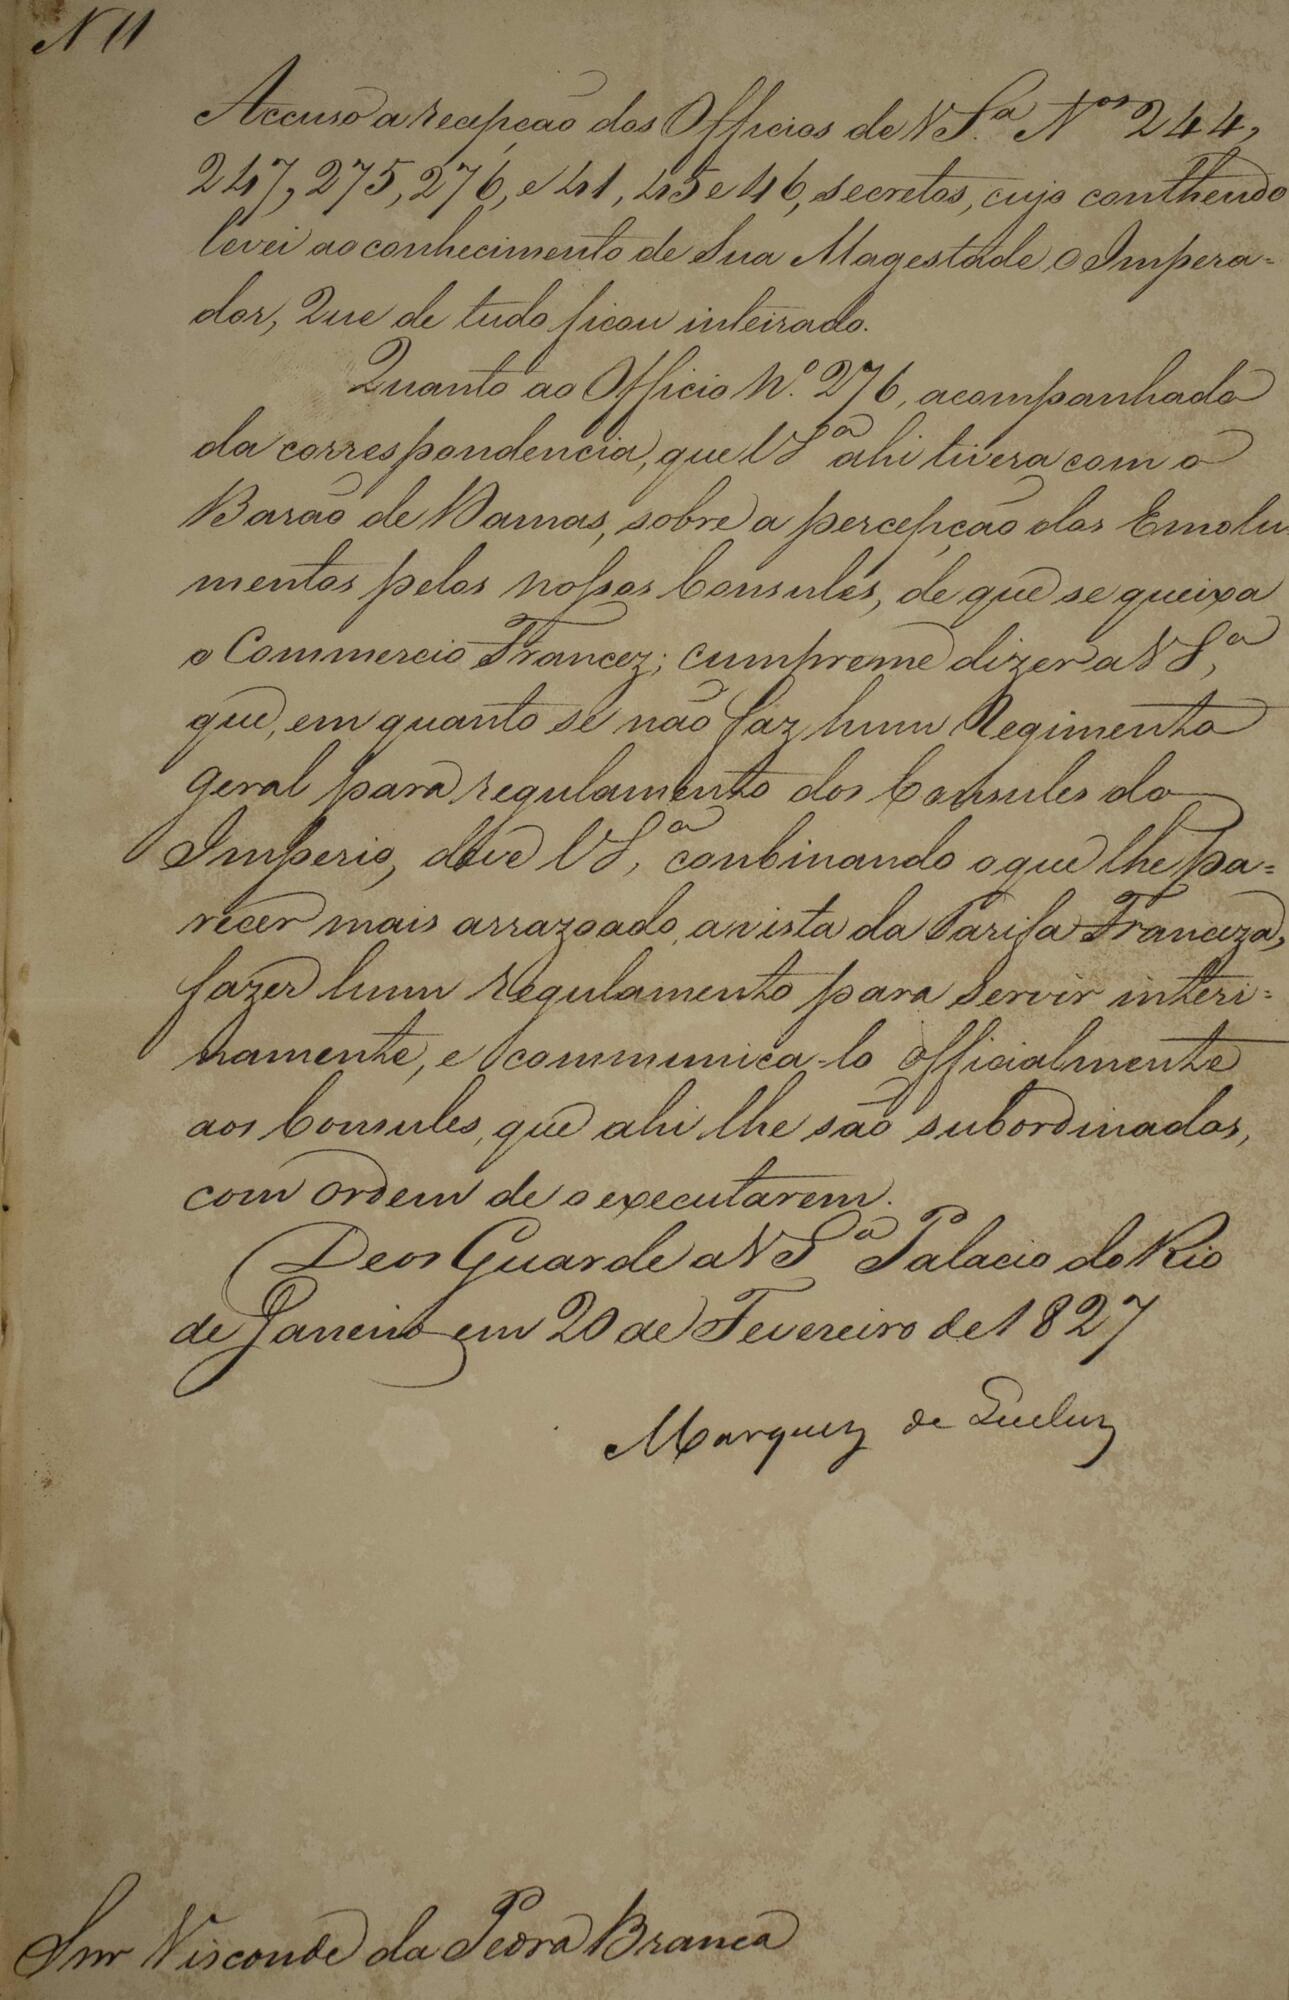 N 11
Accuso a recepção dos Officios de V S.ª N.os 244,
247, 275, 276, e 41, 45 e 46, secretos, cujo conthendo
levei ao conhecimento de Sua Magestade o Impera=
dor, Que de tudo ficou inteirado.
Quanto ao Officio N.º 276, acompanhado
da correspondencia, que V S.ª ahi tivera com o
Barão de Damas, sobre a percepção dos Emolu
mentos pelos nossos Consules, de que se queixa
o Commercio Francez; cumpreme dizer a V S.ª,
que, em quanto se não faz hum Regimento
geral para regulamento dos Consules do
Imperio, deve V S.ª, conbinando o que lhe pa=
recer mais arrazoado, a vista da Tarifa Franceza,
fazer hum regulamento para servir interi=
namente, e communica-lo officialmente
aos Consules, que ahi lhe são subordinados,
com ordem de o executarem.
Deos Guarde a V S.ª Palacio do Rio
de Janeiro em 20 de Fevereiro de 1827
Marquez de Queluz
Snr Visconde da Pedra Branca